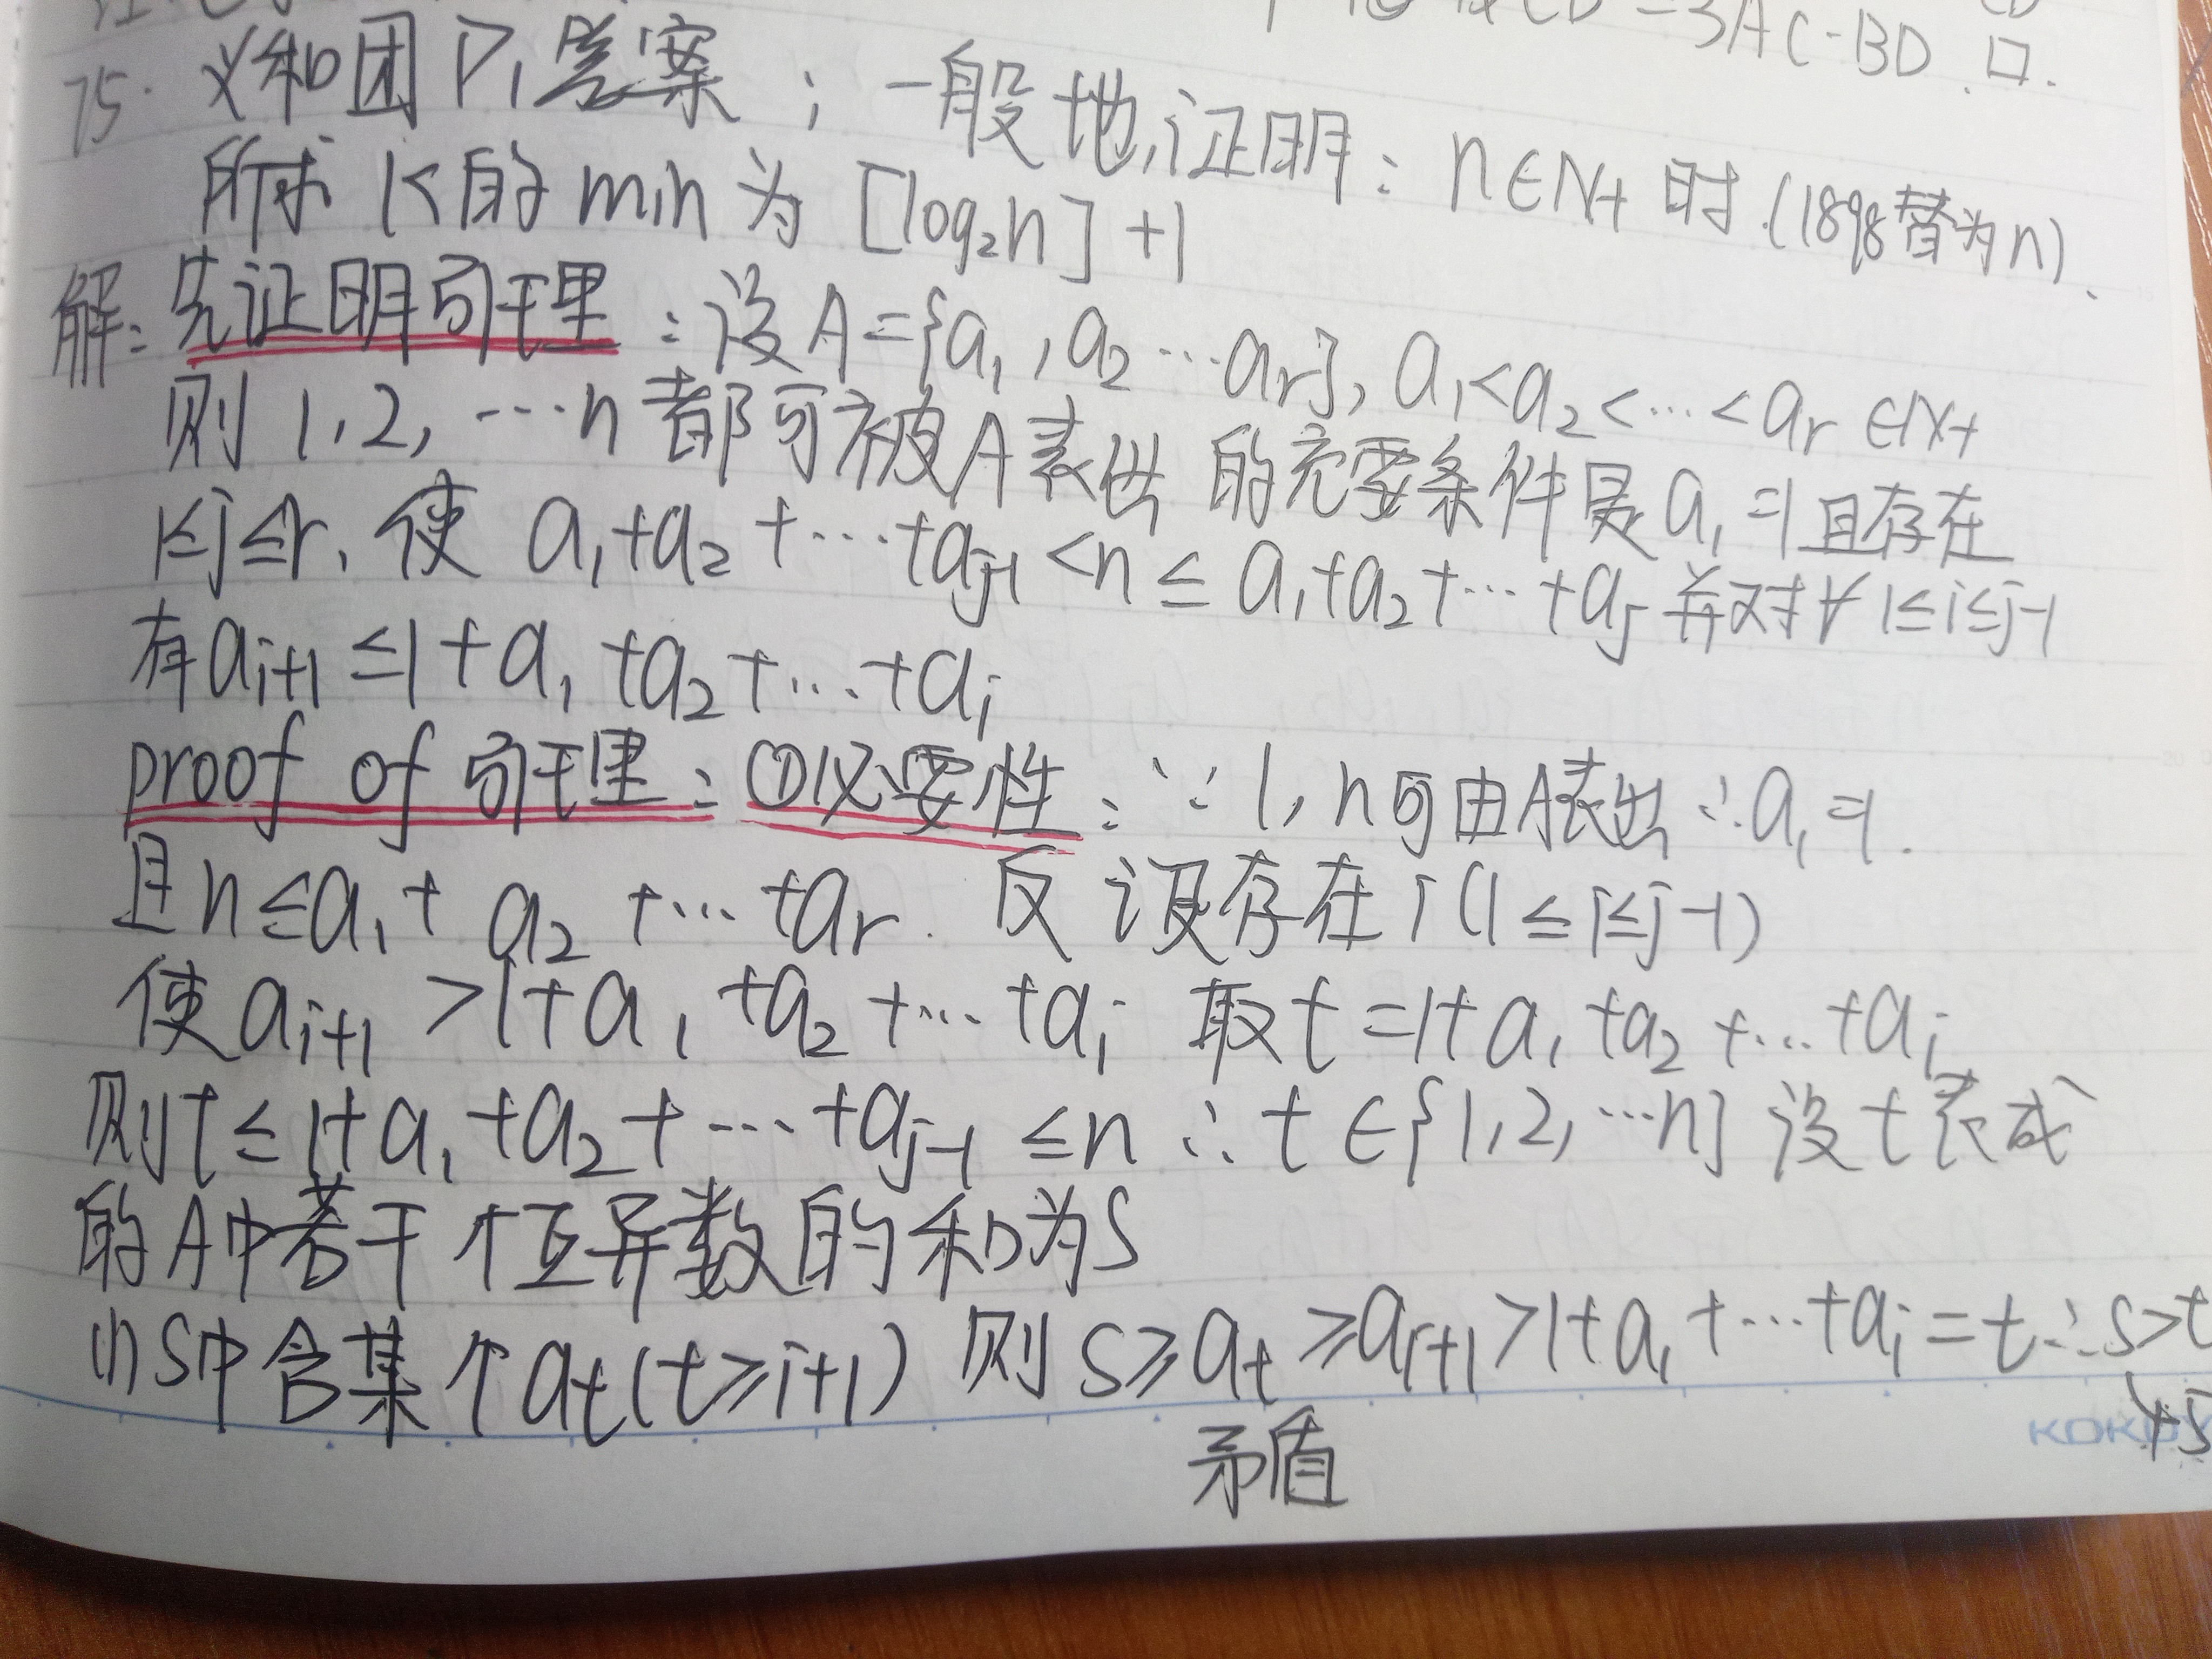 =3AC·BD. □.
75. 义和团P₁答案；一般地,证明：n∈N+ 时(1898替为n).
所求 K的min为 [log₂n]+1
解: 先证明引理：设A={a₁,a₂…aᵣ}, a₁<a₂<…<aᵣ∈N+
则 1,2,…n 都可被A表出 的充要条件是a₁=1且存在
1≤j≤r, 使 a₁+a₂+…+aⱼ₋₁<n≤a₁+a₂+…+aⱼ 并对∀1≤i≤j-1
有aᵢ₊₁≤1+a₁+a₂+…+aᵢ
proof of 引理: ①必要性: ∵1,n可由A表出∴a₁=1.
且n≤a₁+a₂+…+aᵣ. 反设存在i(1≤i≤j-1)
使aᵢ₊₁>1+a₁+a₂+…+aᵢ 取t=1+a₁+a₂+…+aᵢ
则t≤1+a₁+a₂+…+aⱼ₋₁≤n ∴t∈{1,2,…n} 设t表成
的A中若干个互异数的和为S
(1)S中含某个aₜ(t≥i+1) 则S≥aₜ≥aᵢ₊₁>1+a₁+…+aᵢ=t∴S>t
矛盾